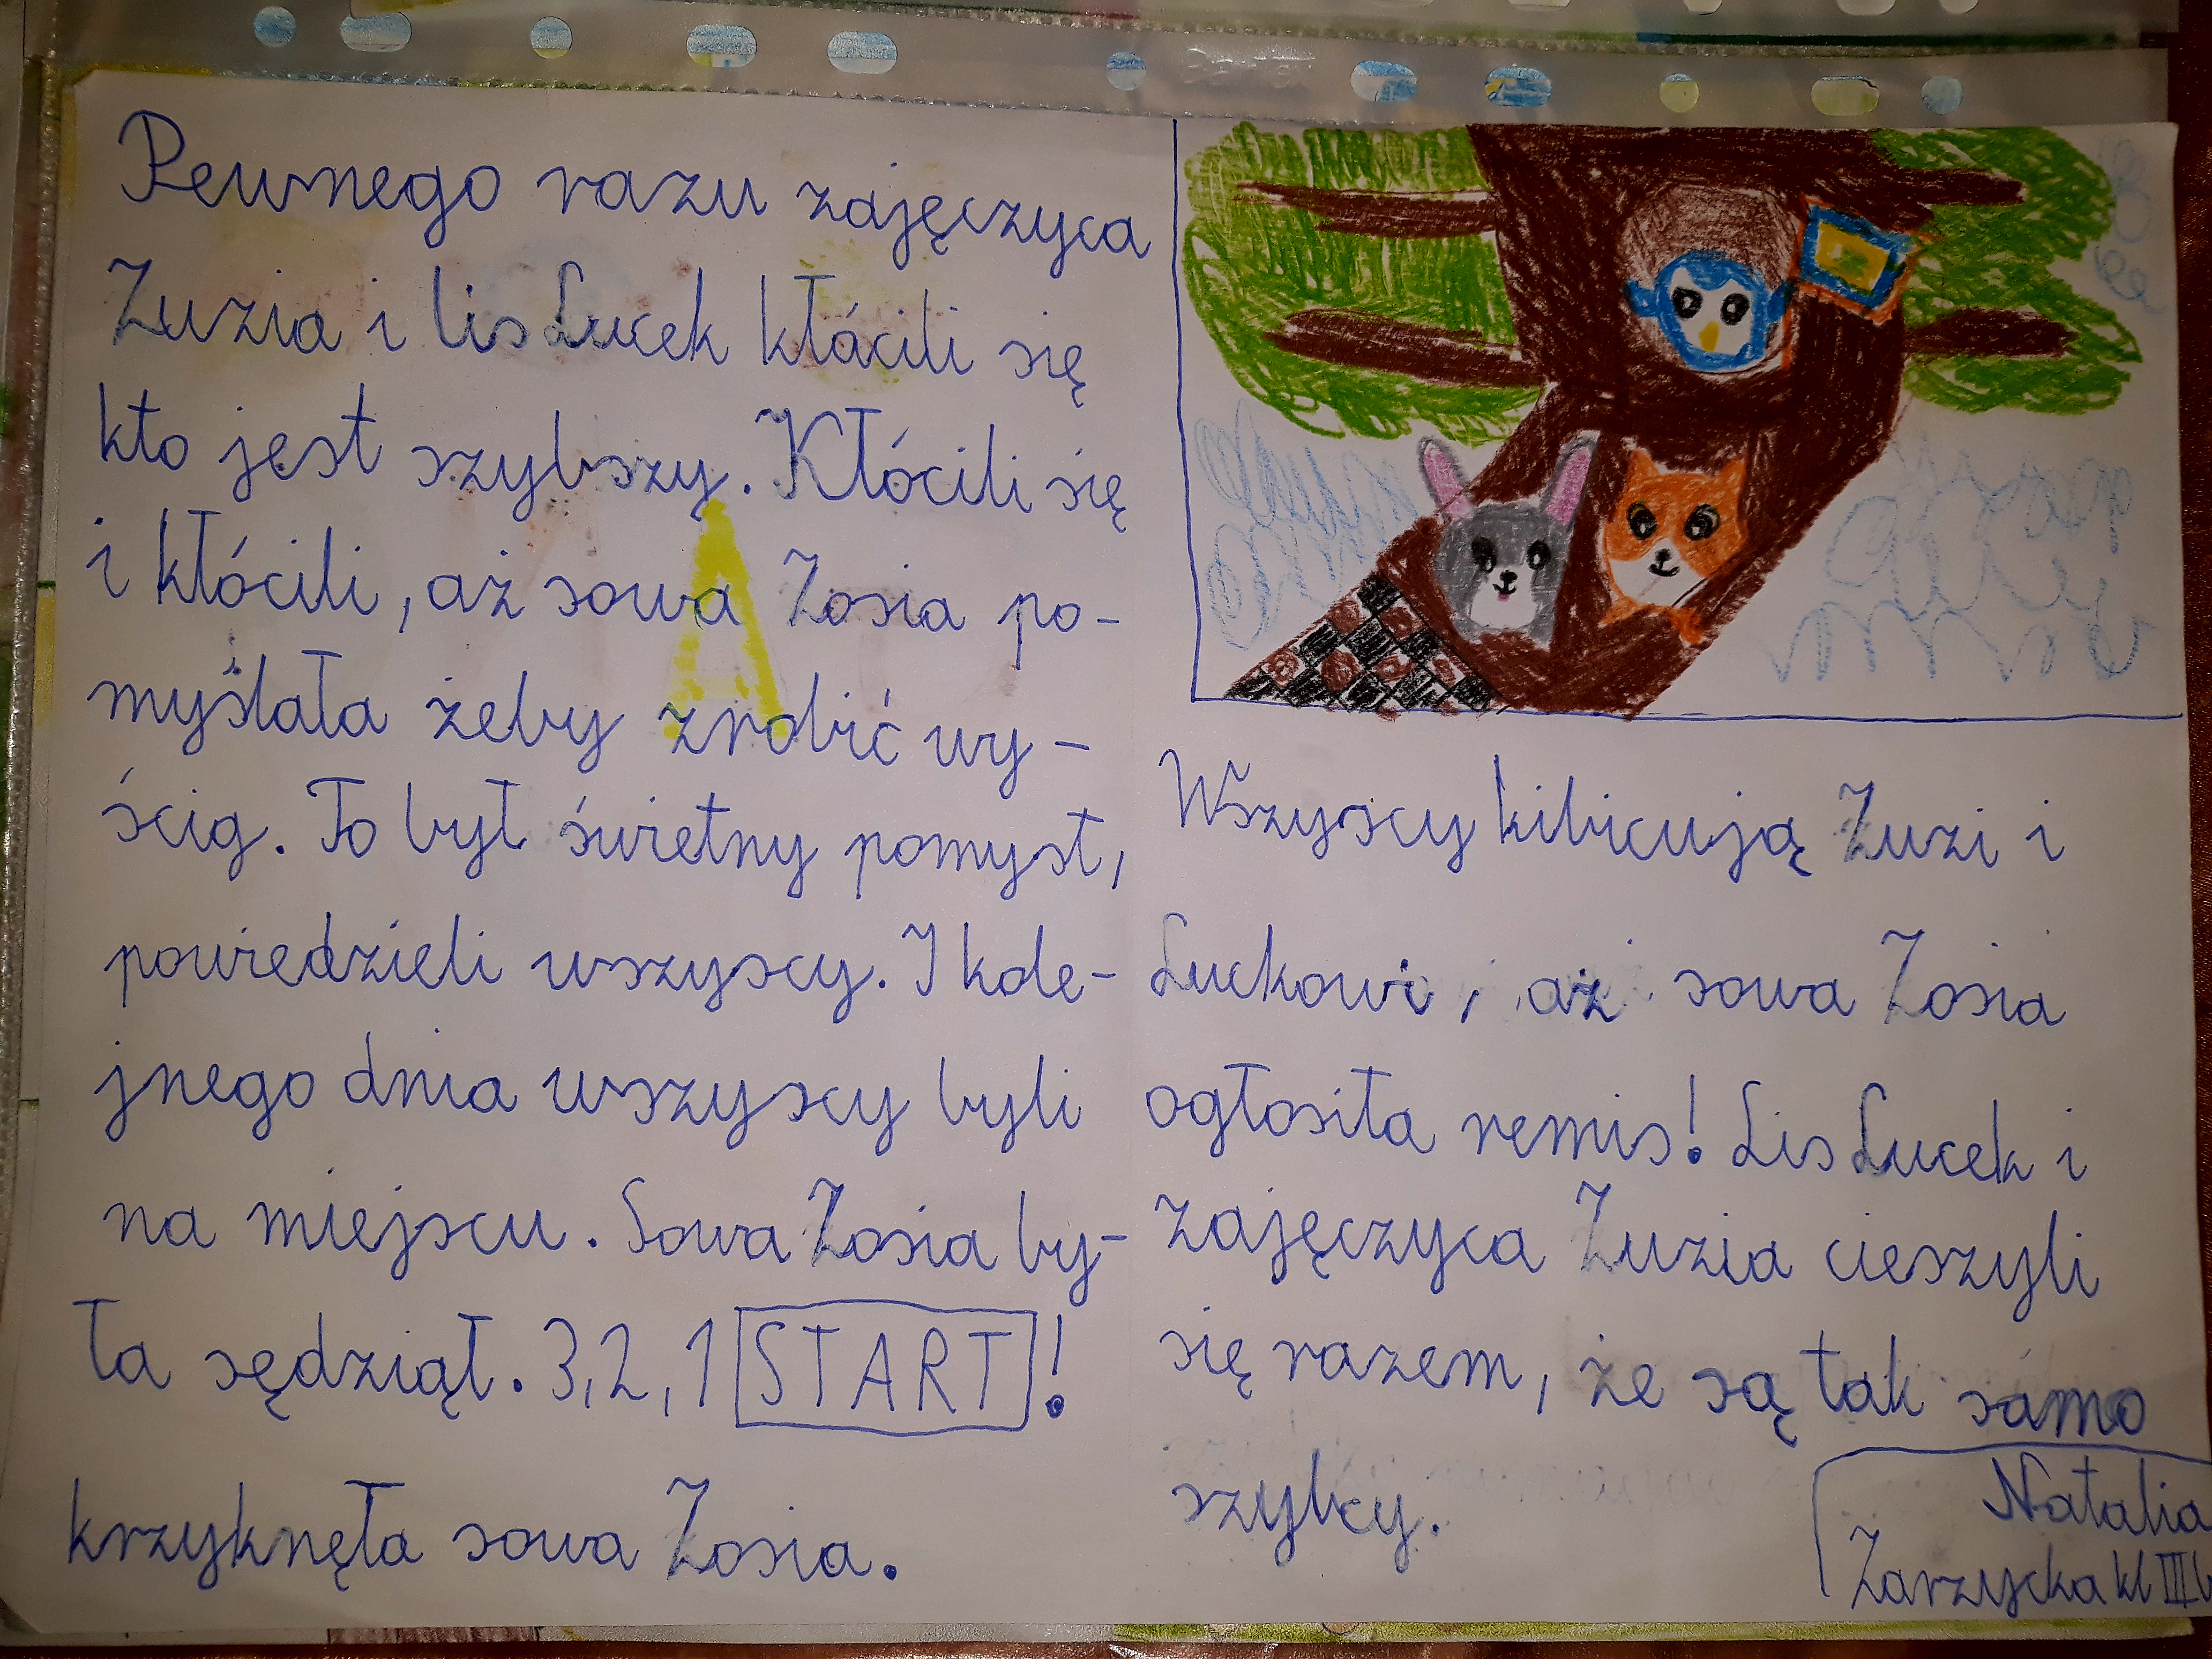 Pewnego razu zajęczyca
Zuzia i lis Lucek kłócili się
kto jest szybszy. Kłócili się
i kłócili, aż sowa Zosia po-
myślała żeby zrobić wy-
ścig. To był świetny pomysł,
powiedzieli wszyscy. I kole-
jnego dnia wszyscy byli
na miejscu. Sowa Zosia by-
ła sędziął. 3, 2, 1 START!
krzyknęła sowa Zosia.
Wszyscy kibicują Zuzi i
Luckowi, aż sowa Zosia
ogłosiła remis! Lis Lucek i
zajęczyca Zuzia cieszyli
się razem, że są tak samo
szybcy.
Natalia
Zarzycka kl III b